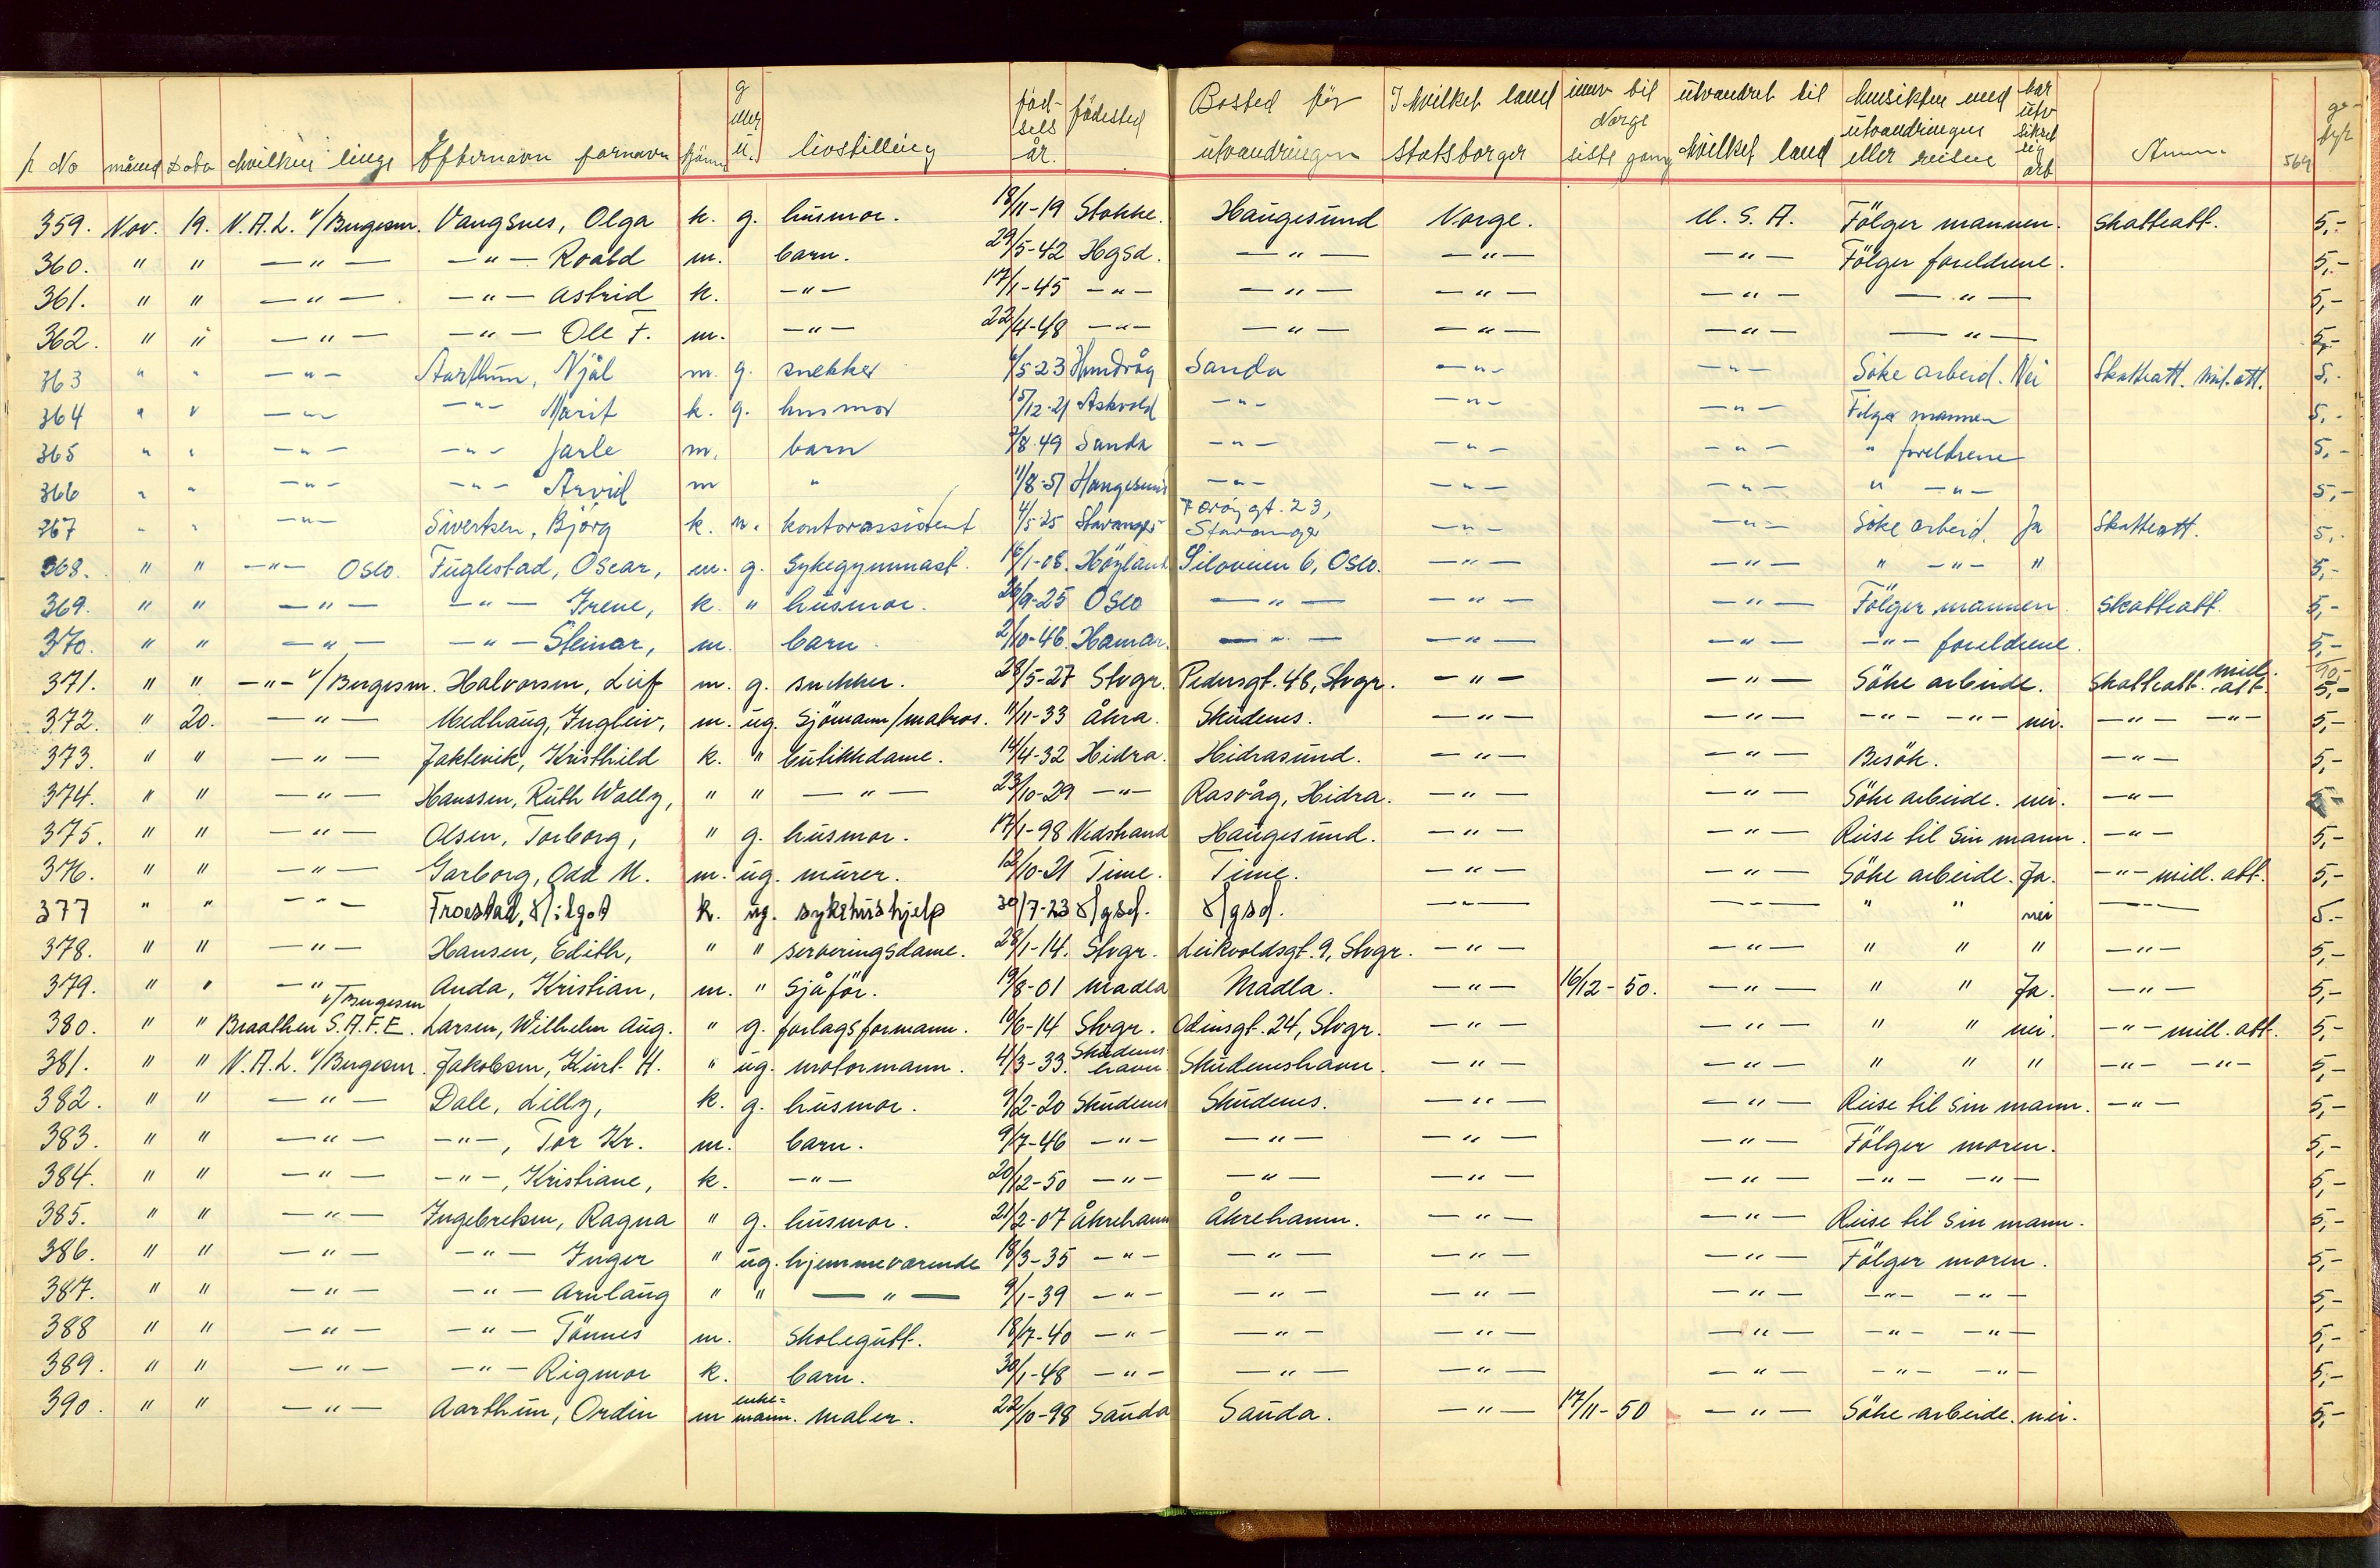 p No måned Dato hvilken linge Efternavn fornavn kjönn g eller u. livsstilling föd- sels år. födested Bosted för utvandringen I hvilket land statsborger innv til Norge siste gang utvandret til hvilket land hensikten med utvandringen eller reisen har utv sikret sig arb Anm. 569 ge- byr
359. Nov. 19. N.A.L. v/Bergesen. Vangsnes, Olga k. g. husmor. 18/11-19 Stokke. Haugesund Norge. U.S.A. Fölger mannen. Skatteatt. 5,-
360. " " —"— —"— Roald m. barn. 29/5-42 Hgsd. —"— —"— —"— Fölger foreldrene. 5,-
361. " " —"— —"— Astrid k. —"— 17/1-45 —"— —"— —"— —"— —"— 5,-
362. " " —"— —"— Ole F. m. —"— 22/4-48 —"— —"— —"— —"— —"— 5,-
363 " " —"— Aarthun, Njål m. g. snekker 6/5 23 Hundvåg Sanda —"— —"— Söke arbeid. Nei Skatteatt. mil. att. 5,-
364 " " —"— —"— Marit k. g. husmor 15/12-21 Askvold —"— —"— —"— Fölger mannen 5,-
365 " " —"— —"— Jarle m. barn 3/8 49 Sanda —"— —"— —"— " foreldrene 5,-
366 " " —"— —"— Arvid m " 11/8-51 Haugesund —"— —"— —"— " —"— 5,-
367 " " —"— Sivertsen, Björg k. u. kontorassistent 4/5 25 Stavanger gt. 23, Stavanger —"— —"— Söke arbeid. Ja Skatteatt. 5,-
368. " " —"— Oslo. Fuglestad, Oscar, m. g. Sykegymnast. 16/1-08. Höyland Siloveien 6, Oslo. —"— —"— " —"— " 5,-
369. " " —"— —"— Irene, k. " husmor. 26/9-25 Oslo —"— —"— —"— Fölger mannen Skatteatt. 5,-
370. " " —"— —"— Steinar, m. barn. 2/10-46. Hamar. —"— —"— —"— —"— foreldrene. 5,-
371. " " —"— v/Bergesen. Halvorsen, Leif m. g. snekker. 28/5-27 Stvgr. Pedersgt. 48, Stvgr. —"— —"— Söke arbeide. Skatteatt. mill. att 90,- 5,-
372. " 20. —"— Medhaug, Ingleiv, m. ug. Sjömann/matros. 11/11-33 Åkra. Skudenes. —"— —"— —"— —"— nei. —"— —"— 5,-
373. " " —"— Jaktevik, Kristhild k. " butikkdame. 14/4-32 Hidra. Hidrasund. —"— —"— Besök. —"— 5,-
374. " " —"— Hanssen, Ruth Wally, " " —"— 23/10-29 —"— Rasvåg, Hidra. —"— —"— Söke arbeide. nei. —"— 5,-
375. " " —"— Olsen, Torborg, " g. husmor. 17/1-98 Nedstrand Haugesund. —"— —"— Reise til sin mann. —"— 5,-
376. " " —"— Garborg, Odd M. m. ug. murer. 12/10-21 Time. Time. —"— —"— Söke arbeide. Ja. —"— mill. att. 5,-
377 " " —"— Froestad, k. ug. sykehushjelp 30/7-23 Hgsd. Hgsd. —"— —"— " " nei —"— 5.-
378. " " —"— Hansen, Edith, " " serveringsdame. 28/1-14. Stvgr. Leikvoldsgt. 9, Stvgr. —"— —"— " " " —"— 5,-
379. " " —"— Anda, Kristian, m. " Sjåför. 19/8-01 Madla Madla. —"— 16/12-50. —"— " " Ja. —"— 5,-
380. " " Braathen S.A.F.E. v/Bergesen Larsen, Wilhelm Aug. " g. forlagsformann. 10/6-14 Stvgr. Odinsgt. 24, Stvgr. —"— —"— " " nei. —"— mill. att. 5,-
381. " " N.A.L. v/Bergesen. Jakobsen, Kurt H. " ug. motormann. 4/3-33. Skudenes- havn. Skudeneshavn. —"— —"— " " " —"— —"— 5,-
382. " " —"— Dale, Lilly, k. g. husmor. 9/2-20 Skudenes Skudenes. —"— —"— Reise til sin mann. —"— 5,-
383. " " —"— —"—, Tor Kr. m. barn. 9/7-46 —"— —"— —"— —"— Fölger moren. 5,-
384. " " —"— —"—, Kristiane, k. —"— 20/12-50 —"— —"— —"— —"— —"— —"— 5,-
385. " " —"— Ingebretsen, Ragna " g. husmor. 21/2-07 Åkrehamn Åkrehamn. —"— —"— Reise til sin mann. 5,-
386. " " —"— —"— Inger " ug. hjemmeværende 18/3-35 —"— —"— —"— —"— Fölger moren. 5,-
387. " " —"— —"— Arnlaug " " —"— 9/1-39 —"— —"— —"— —"— —"— —"— 5,-
388 " " —"— —"— Tönnes m. Skolegutt. 18/7-40 —"— —"— —"— —"— —"— —"— 5,-
389. " " —"— —"— Rigmor k. barn. 30/1-48 —"— —"— —"— —"— —"— —"— 5,-
390. " " —"— Aarthun, Ordin m enke- mann. maler. 22/10-98 Sauda Sauda. —"— 17/11-50 —"— Söke arbeide. nei. 5,-